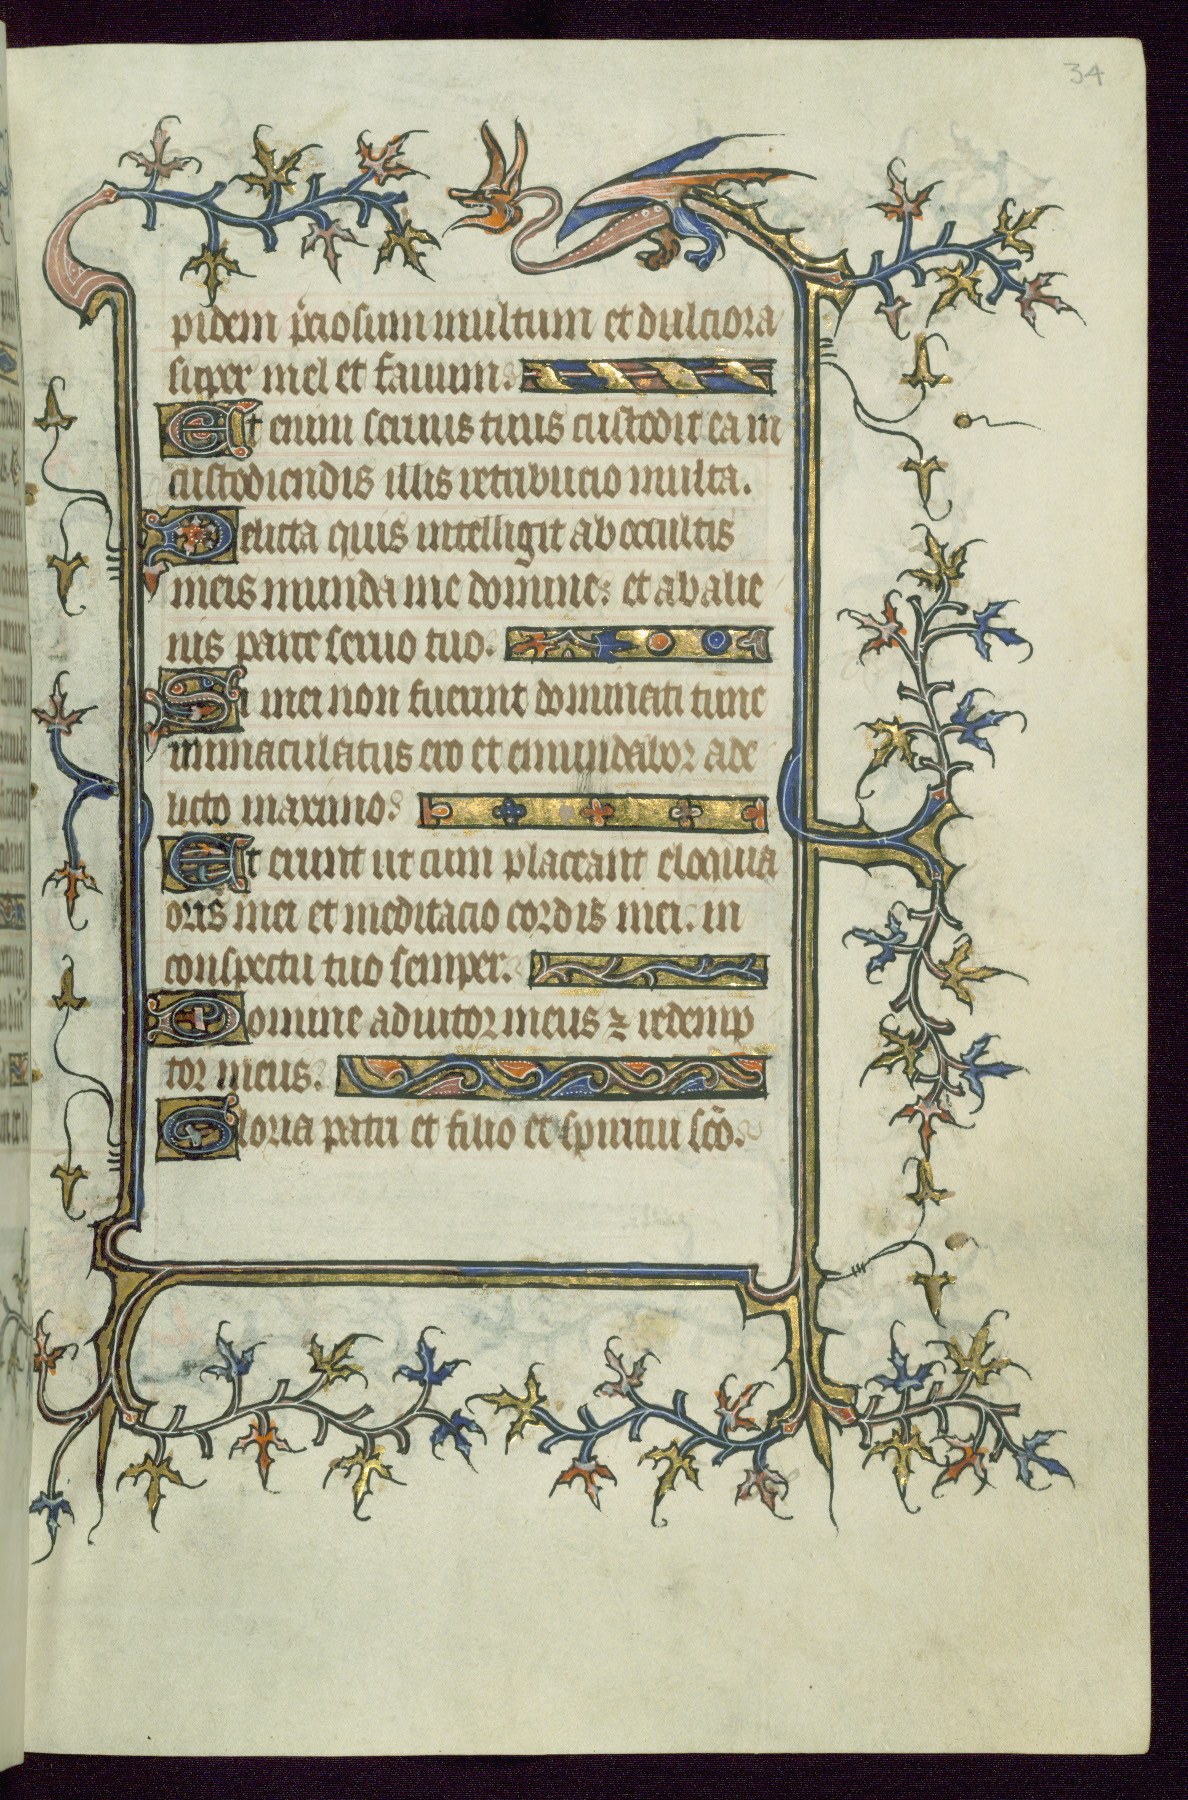 34
pidem p̃ciosum multum et dulciora
super mel et fauum.
Et enim seruus tuus custodit ea in
custodiendis illis retribucio multa.
Delicta quis intelligit ab occultis
meis munda me domine: et ab alie
nis parce seruo tuo.
Si mei non fuerint dominati tunc
immaculatus ero et emundabor a de
licto maximo.
Et erunt ut cum placeant eloquia
oris mei et meditacio cordis mei. in
conspectu tuo semper.
Domine adiutor meus ⁊ redemp
tor meus.
Gloria patri et filio et spiritui sc̃o.